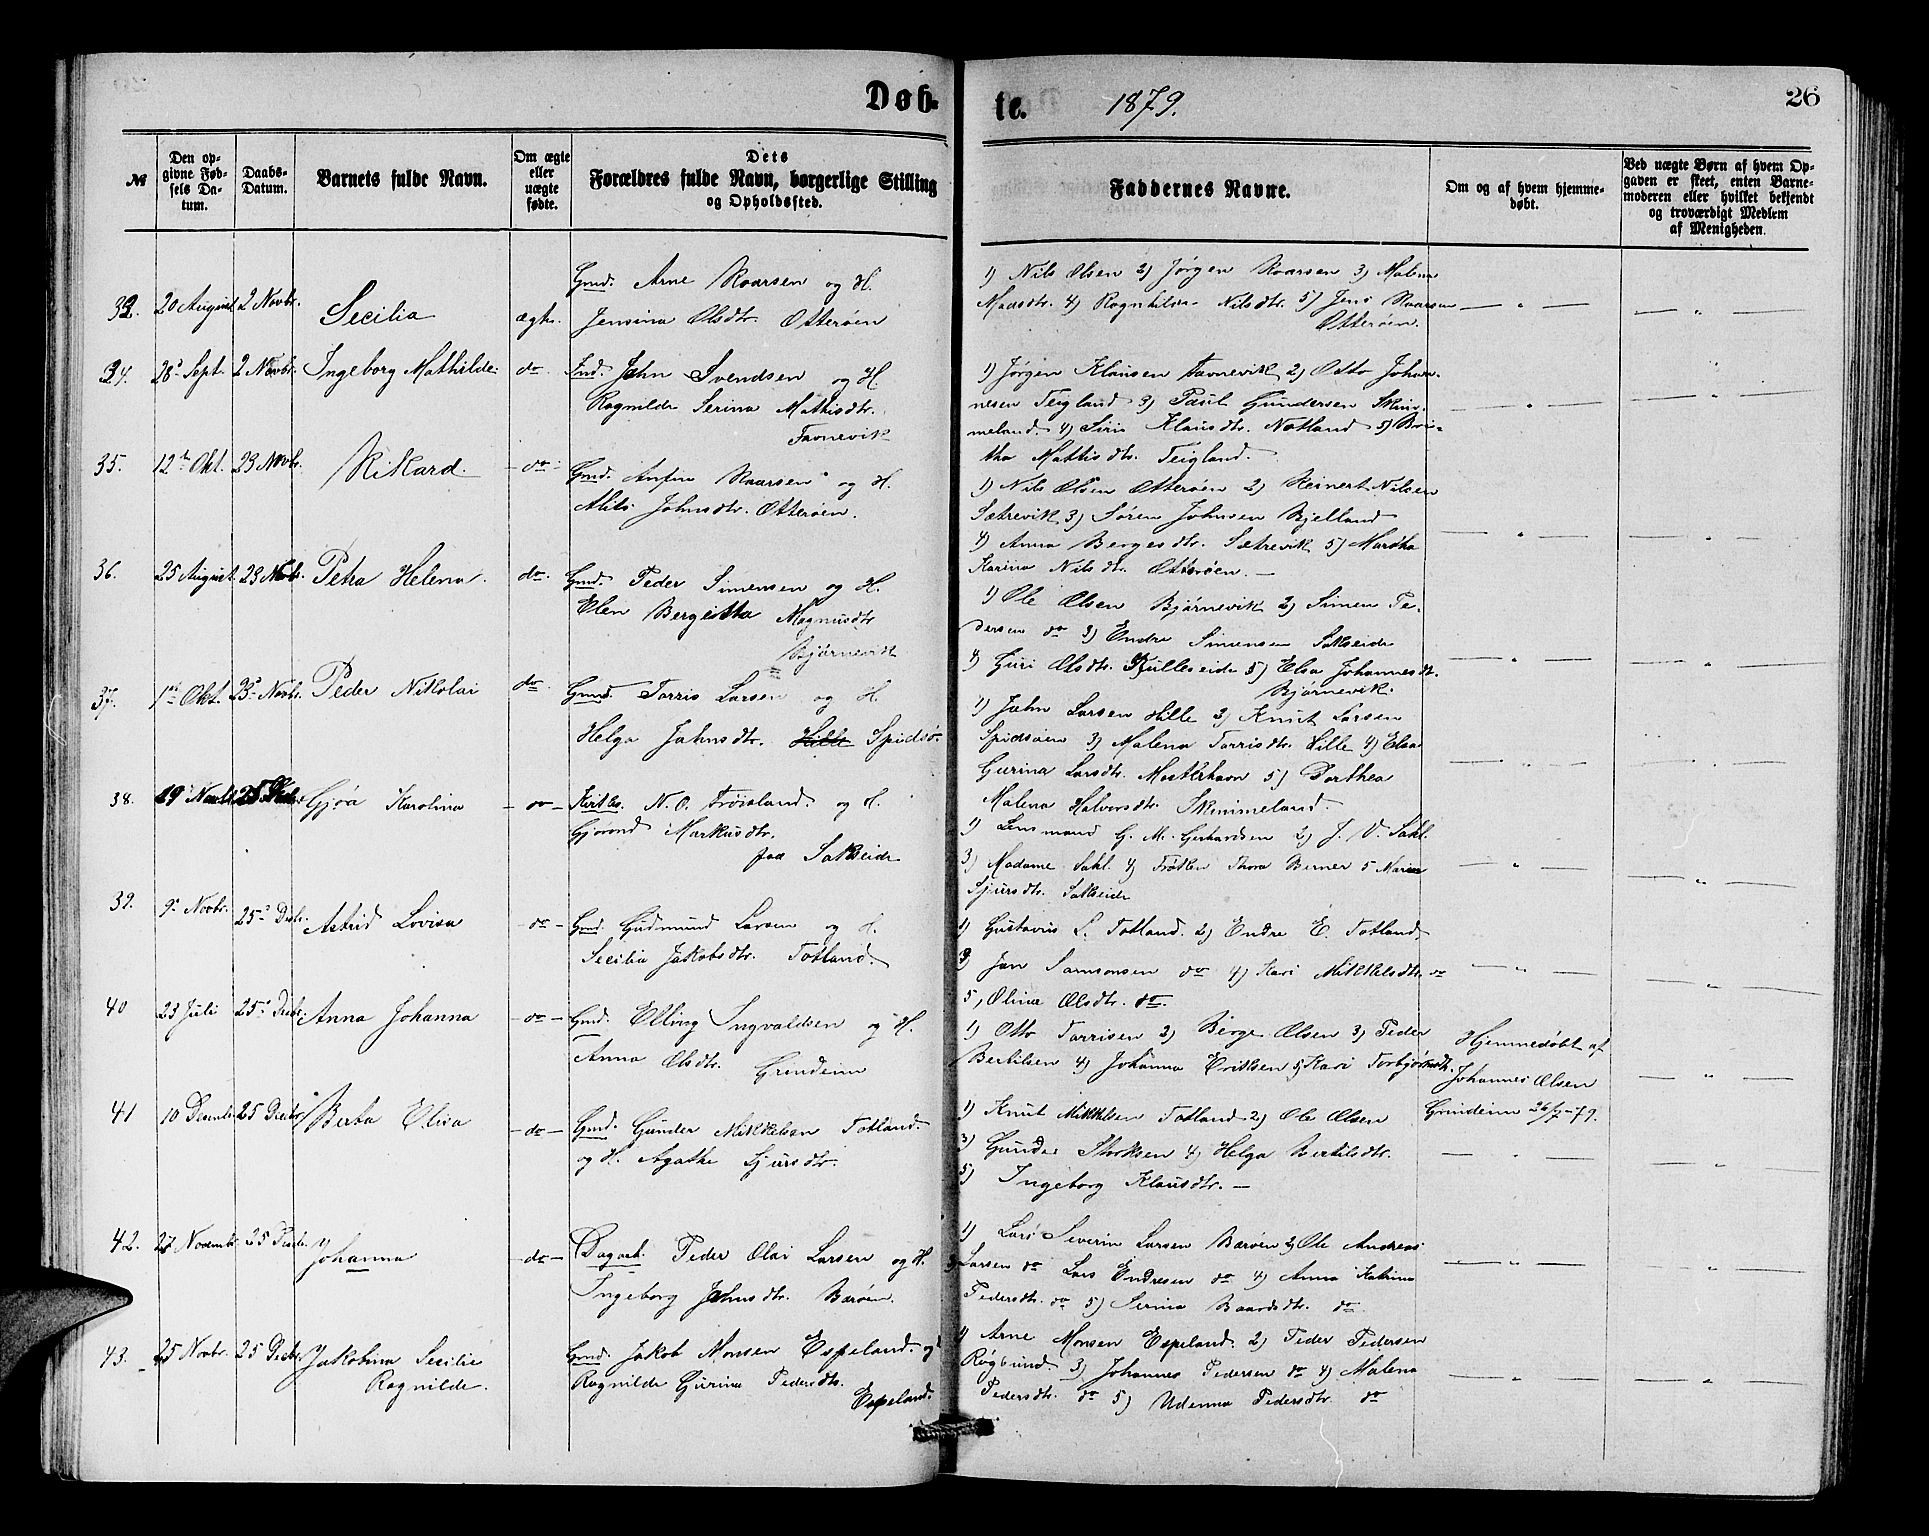 Døb-
te.
1879.
26
№
Den op-
givne Fød-
sels Da-
tum.
Daabs-
Datum.
Barnets fulde Navn.
Om ægte
eller
uægte
fødte.
Dets
Forældres fulde Navn, borgerlige Stilling
og Opholdssted.
Faddernes Navne.
Om og af hvem hjemme-
døbt.
Ved uægte Børn af hvem Op-
gaven er skeet, enten Barne-
moderen eller hvilket bekjendt
og troværdigt Medlem
af Menigheden.
33. 20 August 2 Novbr. Secilia ægte
Gmd. Arne Roarsen og H.
Jensina Olsdtr. Otterøen
1) Nils Olsen 2) Jørgen Roarsen 3) Malena
Madsdtr. 4) Ragnhilda Nilsdtr. 5) Jens Roarsen
Otterøen.
34. 28 Sept. 2 Novbr. Ingeborg Mathilde do
John Svendsen og H.
Ragnilde Serina Mathisdtr.
Favnevik
1) Jørgen Klausen Favnevik 2) Otto Johan-
nesen Teigland 3) Paul Gundersen Skim-
meland. 4) Siri Klausdtr. Notland 5) Bri-
tha Mattisdtr. Teigland.
35. 12te Okt. 23 Novbr. Rikard. do
Gmd. Anfin Roarsen og H.
Johnsdtr. Otterøen.
1) Nils Olsen Otterøen 2) Reinert Nilsen
Sætrevik 3) Søren Johnsen Bjelland
4) Anna Bergesdtr. Sætrevik 5) Martha
Karina Nilsdtr. Otterøen.
36. 25 August 23 Novbr. Petra Helena. do
Gmd. Peder Simensen og H.
Elen Bergitta Magnusdtr
Bjørnevik
1) Ole Olsen Bjørnevik 2) Simen Pe-
dersen do 3) Endre Simensen Sakseide
4) Guri Olsdtr. Kulleseide 5) Elsa Johannesdtr.
Bjørnevik.
37. 1ste Okt. 23 Novbr. Peder Nikolai do
Gmd. Torris Larsen og H.
Helga Johnsdtr. Hille Spidsø.
1) John Larsen Hille 2) Knut Larsen
Spidsøen 3) Malena Torrisdtr. Hille 4) Elsa
Gurina Larsdtr. Mosterhavn 5) Dorthea
Malena Halversdtr. Skimmeland.
38. 19 Novbr. 25 Decbr. Gjøa Karolina do
Kirkes. N. O. Frøisland og H.
Gjørond Markusdtr.
paa Sakseide
1) Lensmand G. M. Gerhardsen 2) J. V. Sahl.
3) Madame Sahl. 4) Frøken Thora Berner 5 Maria
Sjursdtr. Sakseide
39. 9 Novbr. 25 Decbr. Astrid Lovisa do
Gmd. Gudmund Larsen og H.
Secilia Jakobsdtr. Totland.
1) Gustavus L. Totland. 2) Endre E. Totland
3) Jan Samsonsen do 4) Kari Mikkelsdtr. do
5, Oline Olsdtr. do.
40 23 Juli 25 Decbr. Anna Johanna do
Gmd. Elling Ingvaldsen og H.
Anna Olsdtr. Grindeim
1) Otto Torrisen 2) Berge Olsen 3) Peder
Bertilsen 4) Johanna Eriksen 5) Kari Torbjørnsdtr.
Hjemmedøbt af
Johannes Olsen
Grindeim 26/7-79.
41 10 Decembr 25 Decbr Berta Elisa do
Gmd. Gunder Mikkelsen Totland.
og H. Agathe Sjursdtr.
1) Knut Mikkelsen Totland 2) Ole Olsen
3) Gunder Storksen 4) Helga Bertilsdtr.
5) Ingeborg Klausdtr.
42. 27 Novembr 25 Decbr. Johanna do
Dagarb. Peder Olai Larsen og H.
Ingeborg Johnsdtr. Barøen.
1) Lars Severin Larsen Barøen 2) Ole Andreas
Larsen do 3) Lars Endresen do 4) Anna Katrina
Pedersdtr. do 5) Serina Baardsdtr. do
43. 25 Novbr. 25 Decbr. Jakobina Secilie
Ragnilde.
Gmd. Jakob Monsen Espeland og
Ragnilde Gurina Pedersdtr.
Espeland.
1) Arne Monsen Espeland. 2) Peder Pedersen
Røgsund. 3) Johannes Pedersen do 4) Malena
Pedersdtr. do 5) Udenna Pedersdtr. do